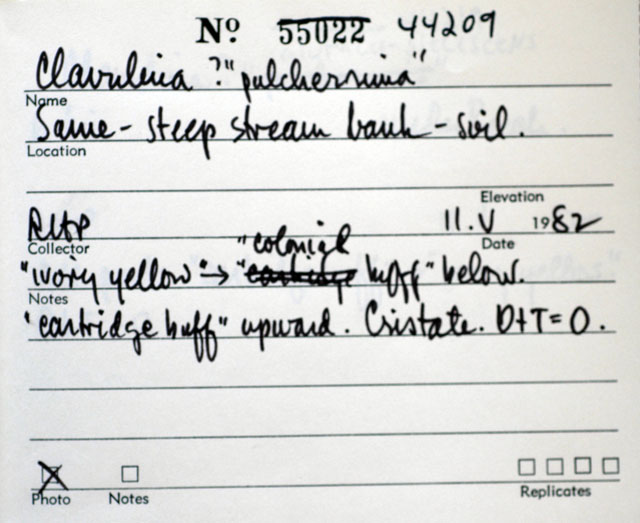 Nº 55022 44209
Clavulina ?"pulcherrima"
Name
Same - steep stream bank - soil.
Location
Elevation
RHP 11.V 1982
Collector Date
"colonial
"ivory yellow" → "cartridge buff" below.
Notes
"cartridge buff" upward. Cristate. D+T=0.
Photo Notes Replicates